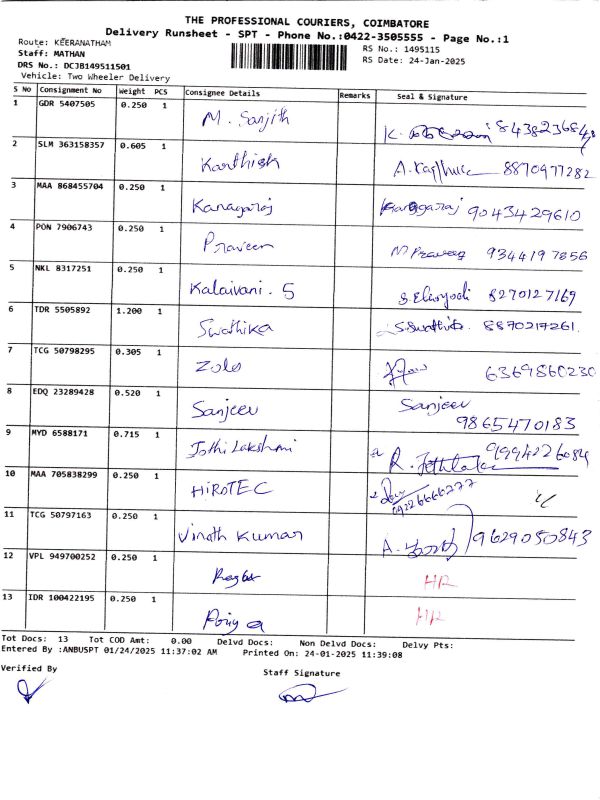 THE PROFESSIONAL COURIERS, COIMBATORE
Delivery Runsheet - SPT - Phone No.:0422-3505555 - Page No.:1
Route: KEERANATHAM
Staff: MATHAN
DRS No.: DCJB149511501
Vehicle: Two Wheeler Delivery
RS No.: 1495115
RS Date: 24-Jan-2025
S No Consignment No Weight PCS Consignee Details Remarks Seal & Signature
1 GDR 5407505 0.250 1 M. Sanjith K.
2 SLM 363158357 0.605 1 Karthick 8870977282
3 MAA 868455704 0.250 1 Kanagaraj Kanagaraj 9043429610
4 PON 7906743 0.250 1 Praveen M Praveen 9344197856
5 NKL 8317251 0.250 1 Kalaivani . S 8270127169
6 TDR 5505892 1.200 1 Swathika S. Swathika 8870217261
7 TCG 50798295 0.305 1 Zolo 6369860230
8 EDQ 23289428 0.520 1 Sanjeev Sanjeev
9865470183
9 MYD 6588171 0.715 1 Jothi Lakshmi R. 9994226084
10 MAA 705838299 0.250 1 HiRoTEC
11 TCG 50797163 0.250 1 Vinoth Kumar A. 9629050843
12 VPL 949700252 0.250 1
13 IDR 100422195 0.250 1
Tot Docs: 13 Tot COD Amt: 0.00 Delvd Docs: Non Delvd Docs: Delvy Pts:
Entered By :ANBUSPT 01/24/2025 11:37:02 AM Printed On: 24-01-2025 11:39:08
Verified By Staff Signature